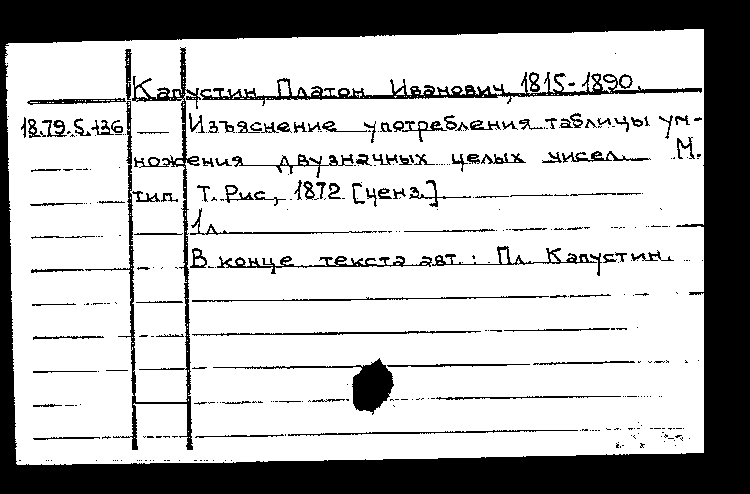 Капустин, Платон Иванович, 1815-1890.
18.79.5.136 — Изъяснение употребления таблицы ум-
ножения двузначных целых чисел. М.
тип. Т. Рис, 1872 [ценз.].
1 л.
В конце текста авт.: Пл. Капустин.